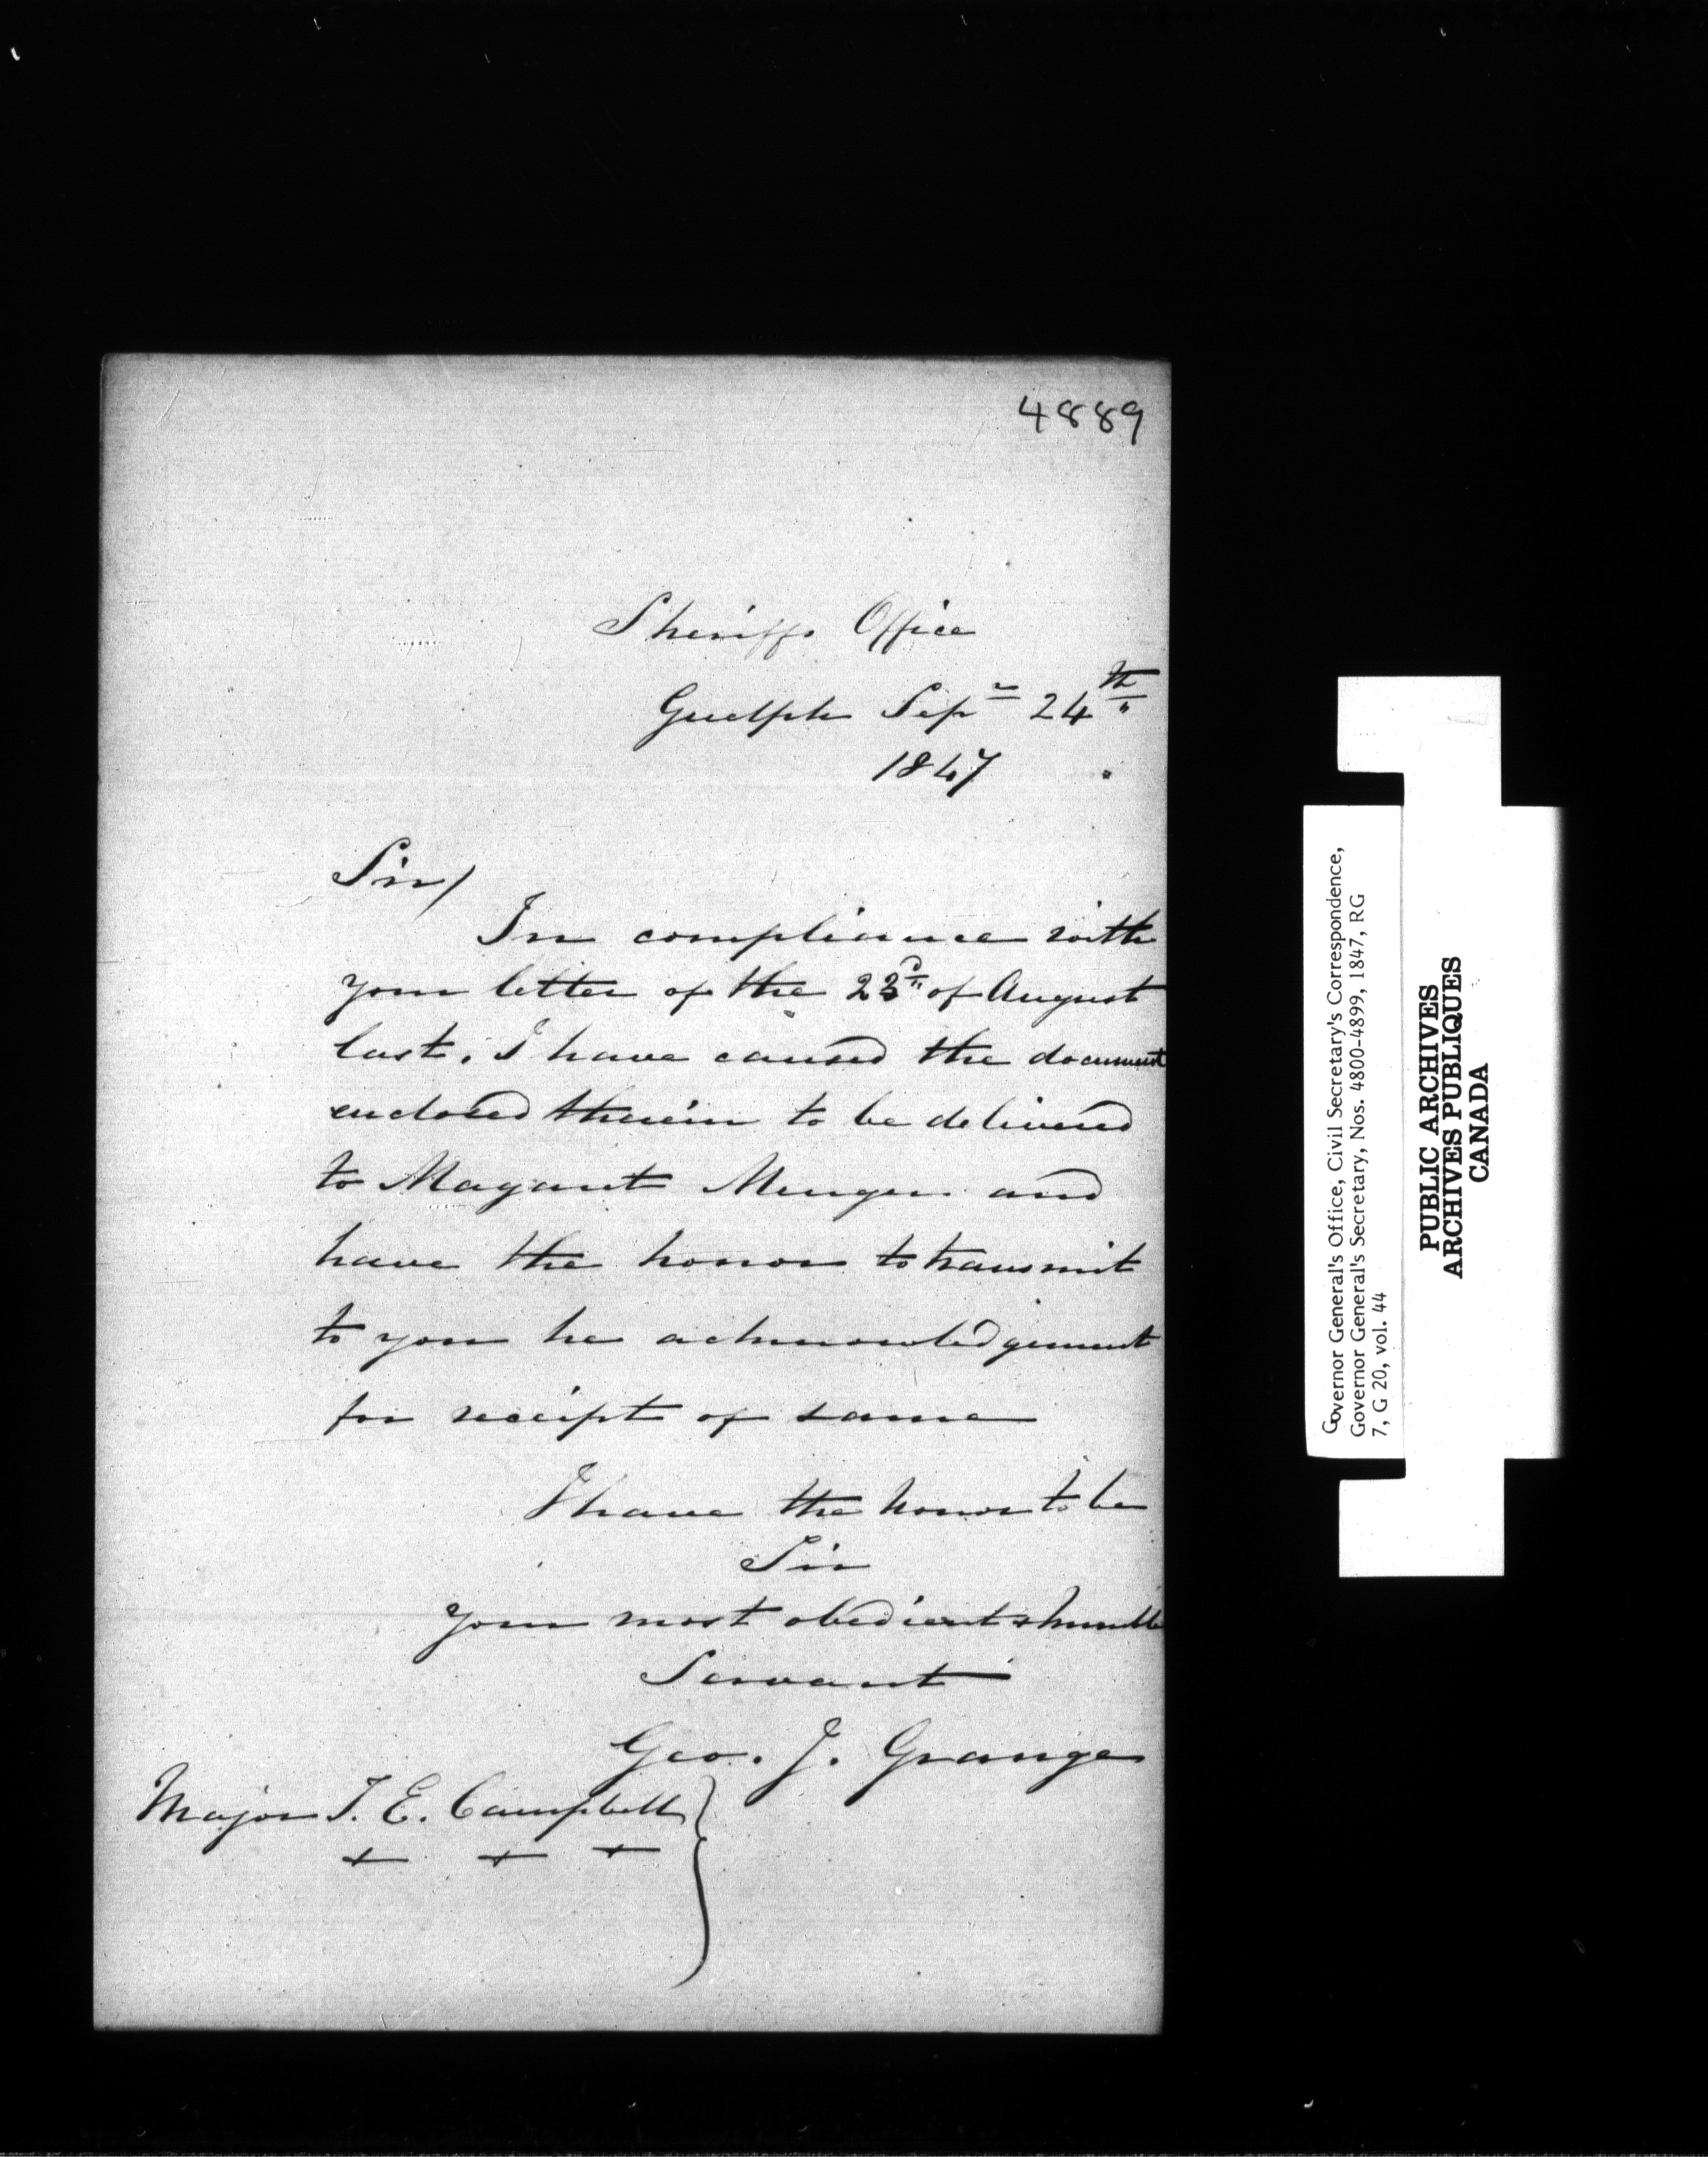 4889
Sheriffs Office
Guelph Sepr 24th
1847
Sir/
In compliance with
your letter of the 23d of August
last, I have caused the document
enclosed therein to be delivered
to Magaret Menger and
have the honor to transmit
to you he acknowledgement
for receipt of same
I have the honor to be
Sir
Your most obedient & humble
Servant
Geo. J. Grange
Major T. E. Campbell
Governor General's Office, Civil Secretary's Correspondence,
Governor General's Secretary, Nos. 4800-4899, 1847, RG
7, G 20, vol. 44
PUBLIC ARCHIVES
ARCHIVES PUBLIQUES
CANADA